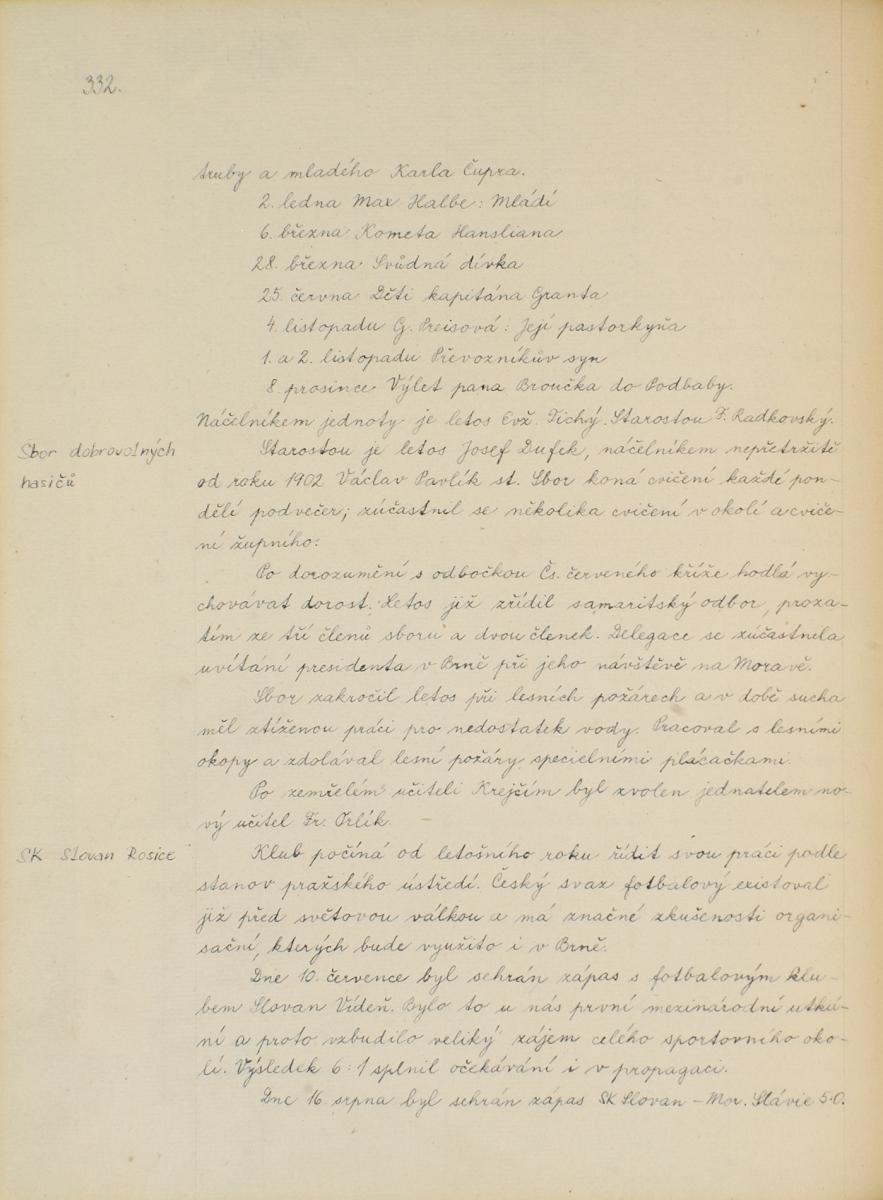 332.
truby a mladého Karla Čupra.
2. ledna Max Halbe: Mládí
6. března Kometa Hansliana
28. března Svůdná dívka
25. června Děti kapitána Granta
4. listopadu G. Preisová: Její pastorkyňa
1. a 2. listopadu Převozníkův syn
8. prosince Výlet pana Broučka do Podbaby.
Náčelníkem jednoty je letos Evž. Tichý. Starostou F. Radkovský.
Sbor dobrovolných
hasičů
Starostou je letos Josef Dufek, náčelníkem nepřetržitě
od roku 1902 Václav Pavlík st. Sbor koná cvičení každé pon-
dělí podvečer; zúčastnil se několika cvičení v okolí a cviče-
ní župního.
Po dorozumění s odbočkou Čs. červeného kříže hodlá vy-
chovávat dorost. Letos již zřídil samaritský odbor, proza-
tím ze tří členů sboru a dvou členek. Delegace se zúčastnila
uvítání presidenta v Brně při jeho návštěvě na Moravě.
Sbor zakročil letos při lesních požárech a v době sucha
měl ztíženou práci pro nedostatek vody. Pracoval s lesními
okopy a zdolával lesní požáry specielními plácačkami.
Po zemřelém učiteli Krejčím byl zvolen jednatelem no-
vý učitel Fr. Orlík.
SK Slovan Rosice
Klub počíná od letošního roku řídit svou práci podle
stanov pražského ústředí. Český svaz fotbalový existoval
již před světovou válkou a má značné zkušenosti organi-
sační, kterých bude využito i v Brně.
Dne 10. července byl sehrán zápas s fotbalovým klu-
bem Slovan Vídeň. Bylo to u nás první mezinárodní utká-
ní a proto vzbudilo veliký zájem celého sportovního oko-
lí. Výsledek 6:1 splnil očekávání i v propagaci.
Dne 16. srpna byl sehrán zápas SK Slovan – Mor. Slávie 5:0.